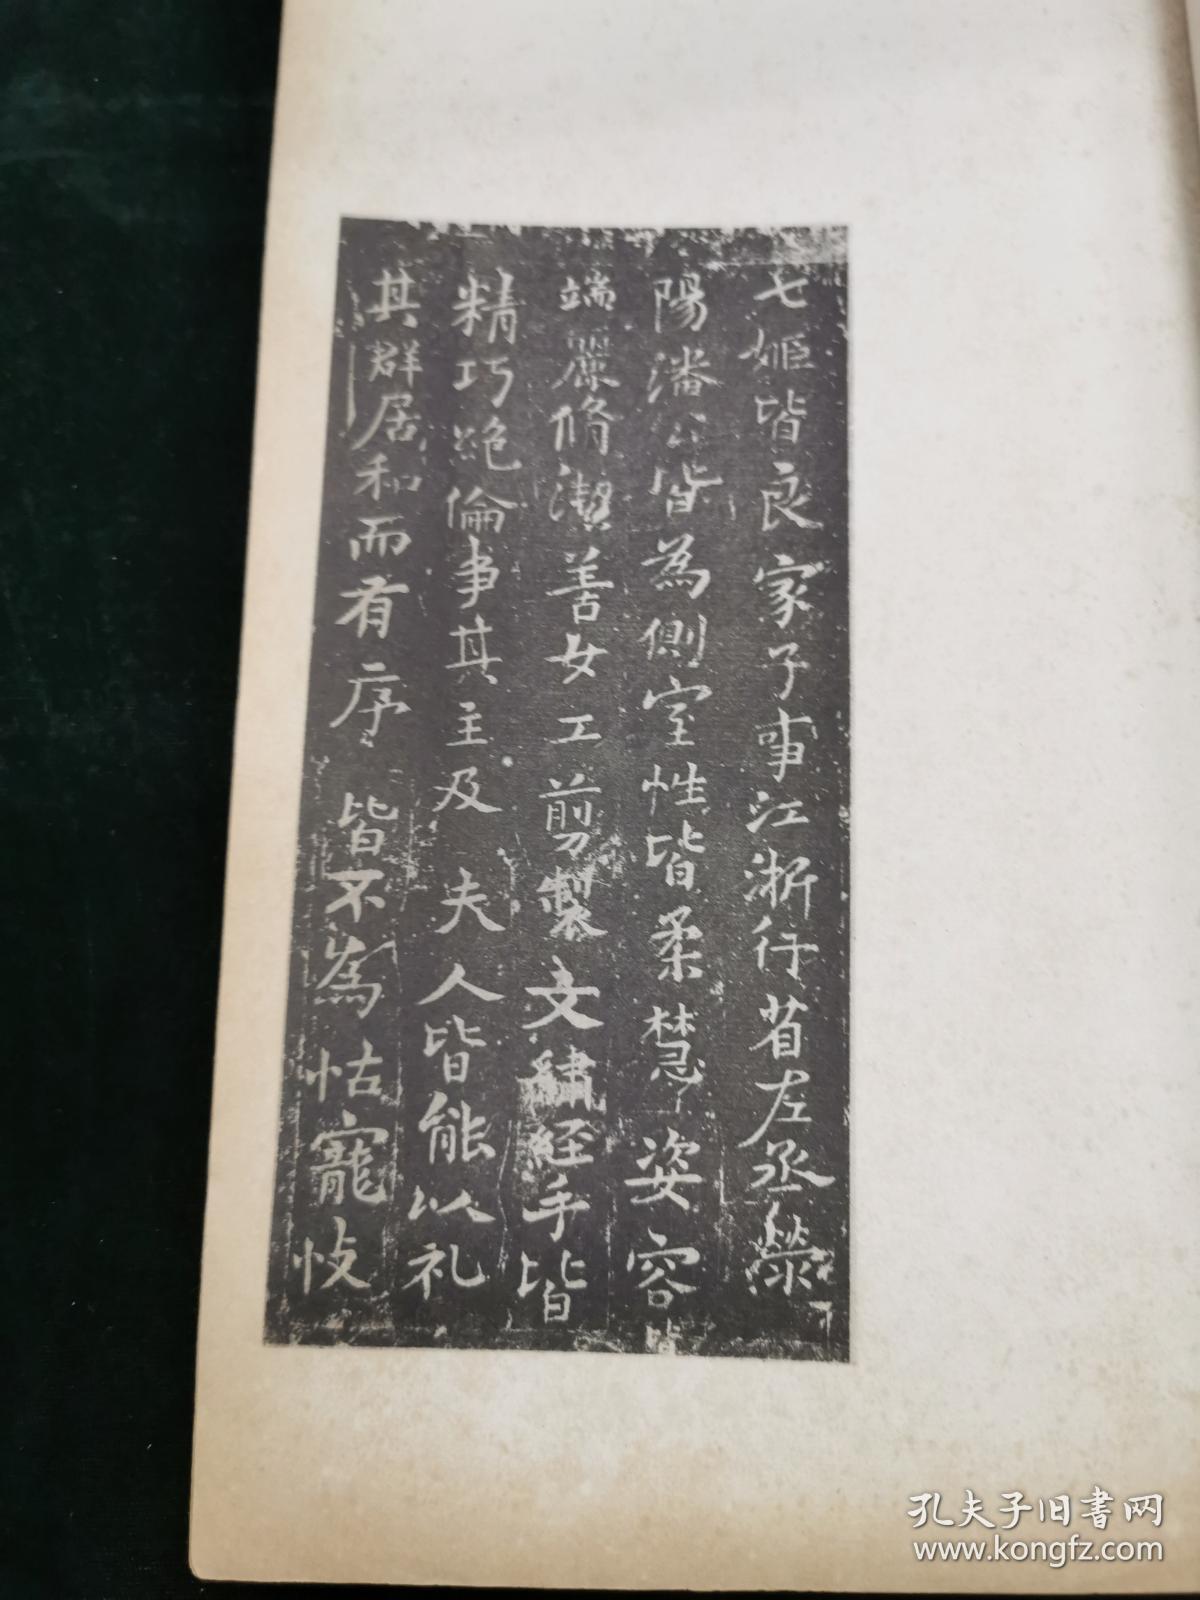 七姬皆良家子事江浙行省左丞滎
陽潘公皆為側室性皆柔慧姿容皆
端麗脩潔善女工剪製文繡經手皆
精巧絕倫事其主及夫人皆能以礼
其群居和而有序皆不為怙寵忮
孔夫子旧书网
www.kongfz.com